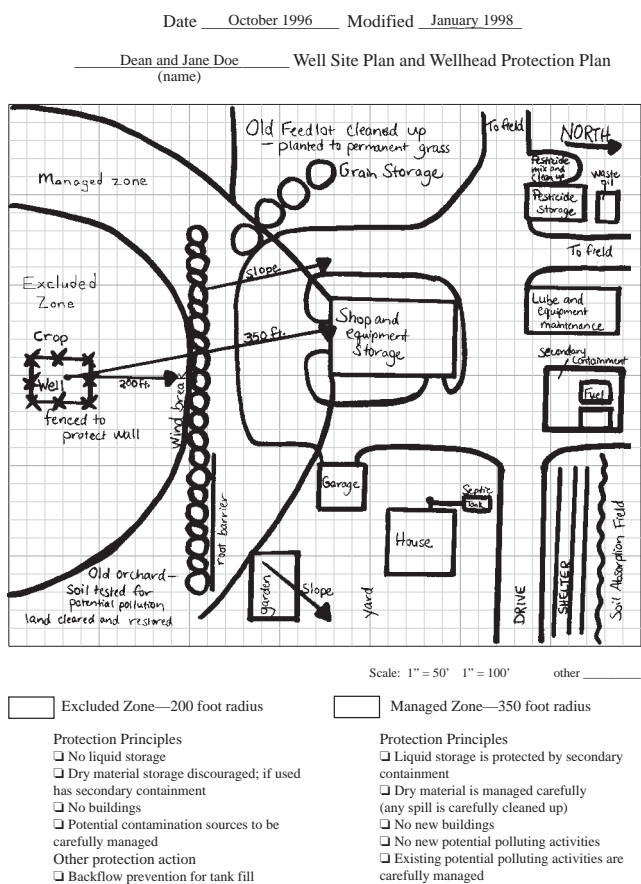 Date October 1996 Modified January 1998
Dean and Jane Doe Well Site Plan and Wellhead Protection Plan
(name)
Old Feedlot cleaned up
— planted to permanent grass
To field
NORTH
Managed zone
Grain Storage
Pesticide
mix and
clean up
Waste
oil
Pesticide
Storage
To field
Slope
Excluded
Zone
Lube and
equipment
maintenance
Shop and
equipment
Storage
350 ft.
Crop
Well
200 ft.
fenced to
protect wall
Wind break
Secondary
Containment
Fuel
Garage
root barrier
Septic
Tank
House
Old orchard—
Soil tested for
potential pollution
land cleared and restored
garden
Slope
yard
DRIVE
SHELTER
Soil Absorption Field
Scale: 1” = 50’ 1” = 100’ other
Excluded Zone—200 foot radius
Protection Principles
❏ No liquid storage
❏ Dry material storage discouraged; if used
has secondary containment
❏ No buildings
❏ Potential contamination sources to be
carefully managed
Other protection action
❏ Backflow prevention for tank fill
Managed Zone—350 foot radius
Protection Principles
❏ Liquid storage is protected by secondary
containment
❏ Dry material is managed carefully
(any spill is carefully cleaned up)
❏ No new buildings
❏ No new potential polluting activities
❏ Existing potential polluting activities are
carefully managed